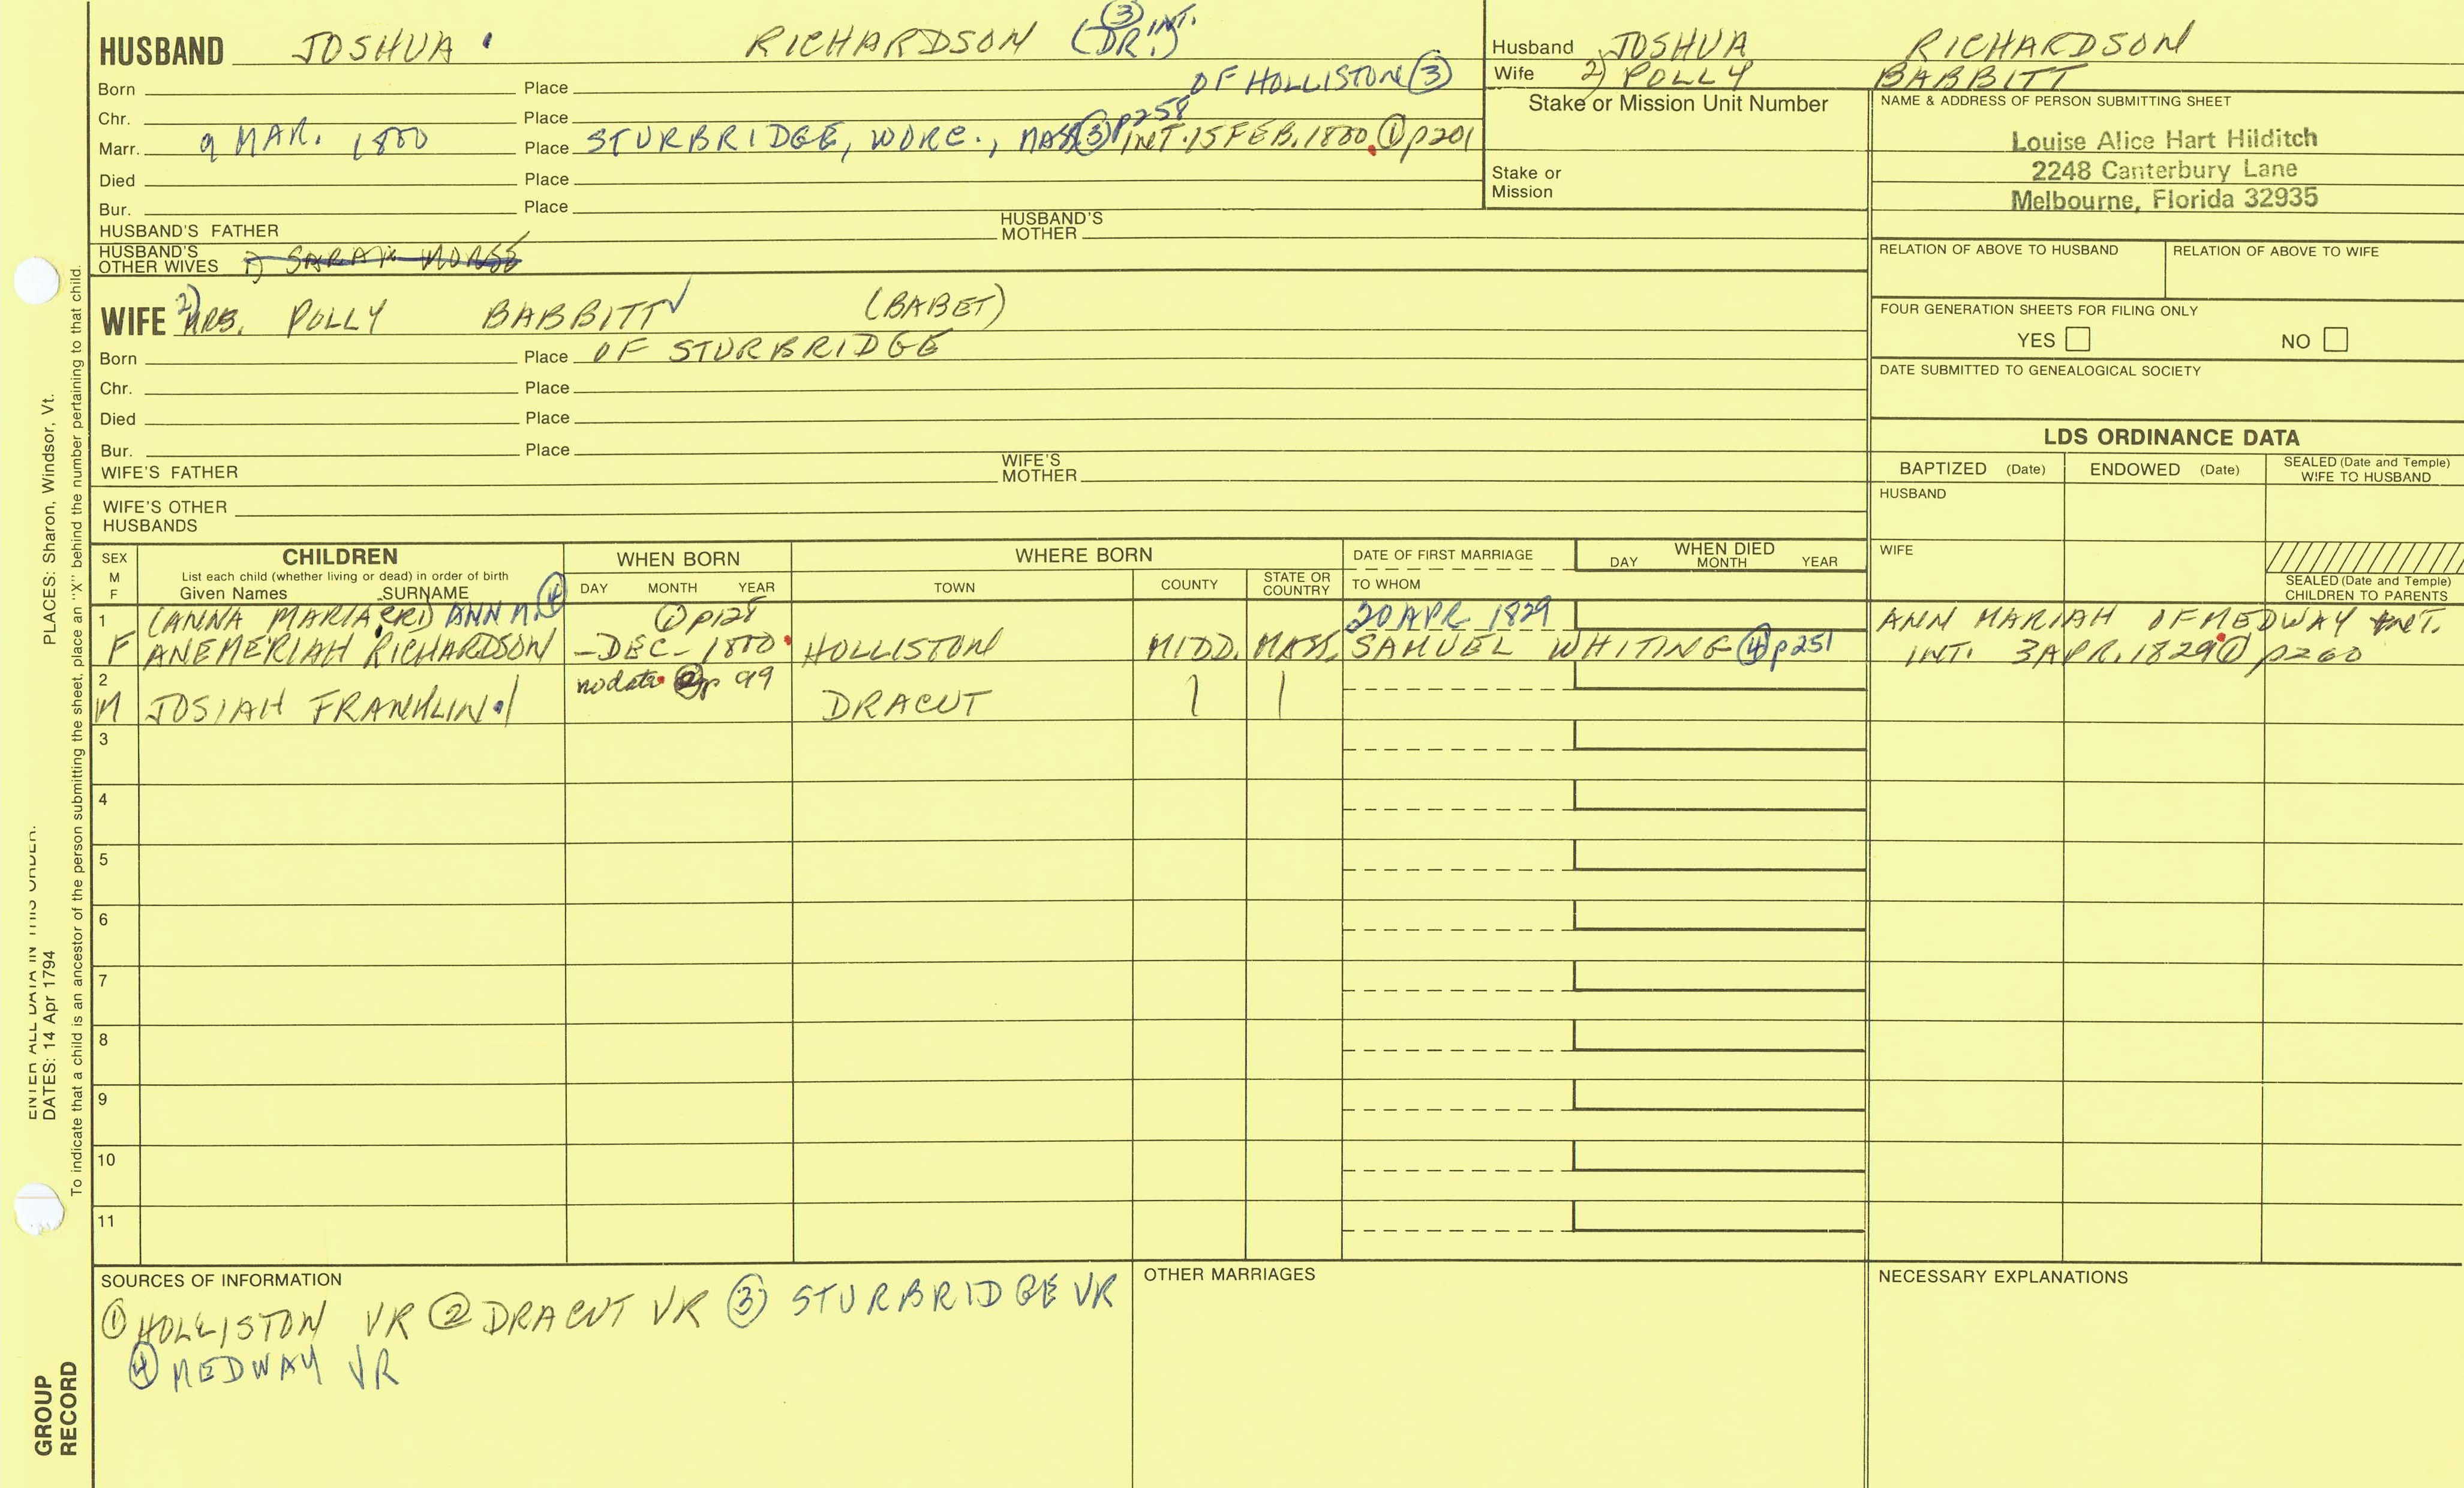 HUSBAND JOSHUA RICHARDSON (DR.) ③ INT.
Born Place OF HOLLISTON ③
Chr. Place
Marr. 9 MAR. 1800 Place STURBRIDGE, WORC., MASS ③ p258 INT. 15 FEB. 1800. ① p201
Died Place
Bur. Place
HUSBAND'S FATHER HUSBAND'S MOTHER
HUSBAND'S OTHER WIVES SARAH MORSE
WIFE 2) MRS. POLLY BABBITT (BABET)
Born Place OF STURBRIDGE
Chr. Place
Died Place
Bur. Place
WIFE'S FATHER WIFE'S MOTHER
WIFE'S OTHER HUSBANDS
Husband JOSHUA RICHARDSON
Wife 2) POLLY BABBITT
Stake or Mission Unit Number
Stake or Mission
NAME & ADDRESS OF PERSON SUBMITTING SHEET
Louise Alice Hart Hilditch
2248 Canterbury Lane
Melbourne, Florida 32935
RELATION OF ABOVE TO HUSBAND RELATION OF ABOVE TO WIFE
FOUR GENERATION SHEETS FOR FILING ONLY
YES NO
DATE SUBMITTED TO GENEALOGICAL SOCIETY
LDS ORDINANCE DATA
BAPTIZED (Date) ENDOWED (Date) SEALED (Date and Temple) WIFE TO HUSBAND
HUSBAND
WIFE
SEALED (Date and Temple) CHILDREN TO PARENTS
SEX M F
CHILDREN
List each child (whether living or dead) in order of birth
Given Names SURNAME
WHEN BORN
DAY MONTH YEAR
WHERE BORN
TOWN COUNTY STATE OR COUNTRY
DATE OF FIRST MARRIAGE
TO WHOM
WHEN DIED
DAY MONTH YEAR
1 (ANNA MARIA CR1) ANN M. ④ ① p128 20 APR 1829 ANN MARIAH OF MEDWAY INT.
F ANEMERIAH RICHARDSON – DEC – 1800 HOLLISTON MIDD. MASS. SAMUEL WHITING ④ p251 INT. 3 APR. 1829 ① p260
2 no date ② p 99
M JOSIAH FRANKLIN DRACUT
3
4
5
6
7
8
9
10
11
SOURCES OF INFORMATION
① HOLLISTON VR ② DRACUT VR ③ STURBRIDGE VR
④ MEDWAY VR
OTHER MARRIAGES
NECESSARY EXPLANATIONS
ENTER ALL DATA IN THIS ORDER.
DATES: 14 Apr 1794 PLACES: Sharon, Windsor, Vt.
To indicate that a child is an ancestor of the person submitting the sheet, place an "X" behind the number pertaining to that child.
GROUP
RECORD